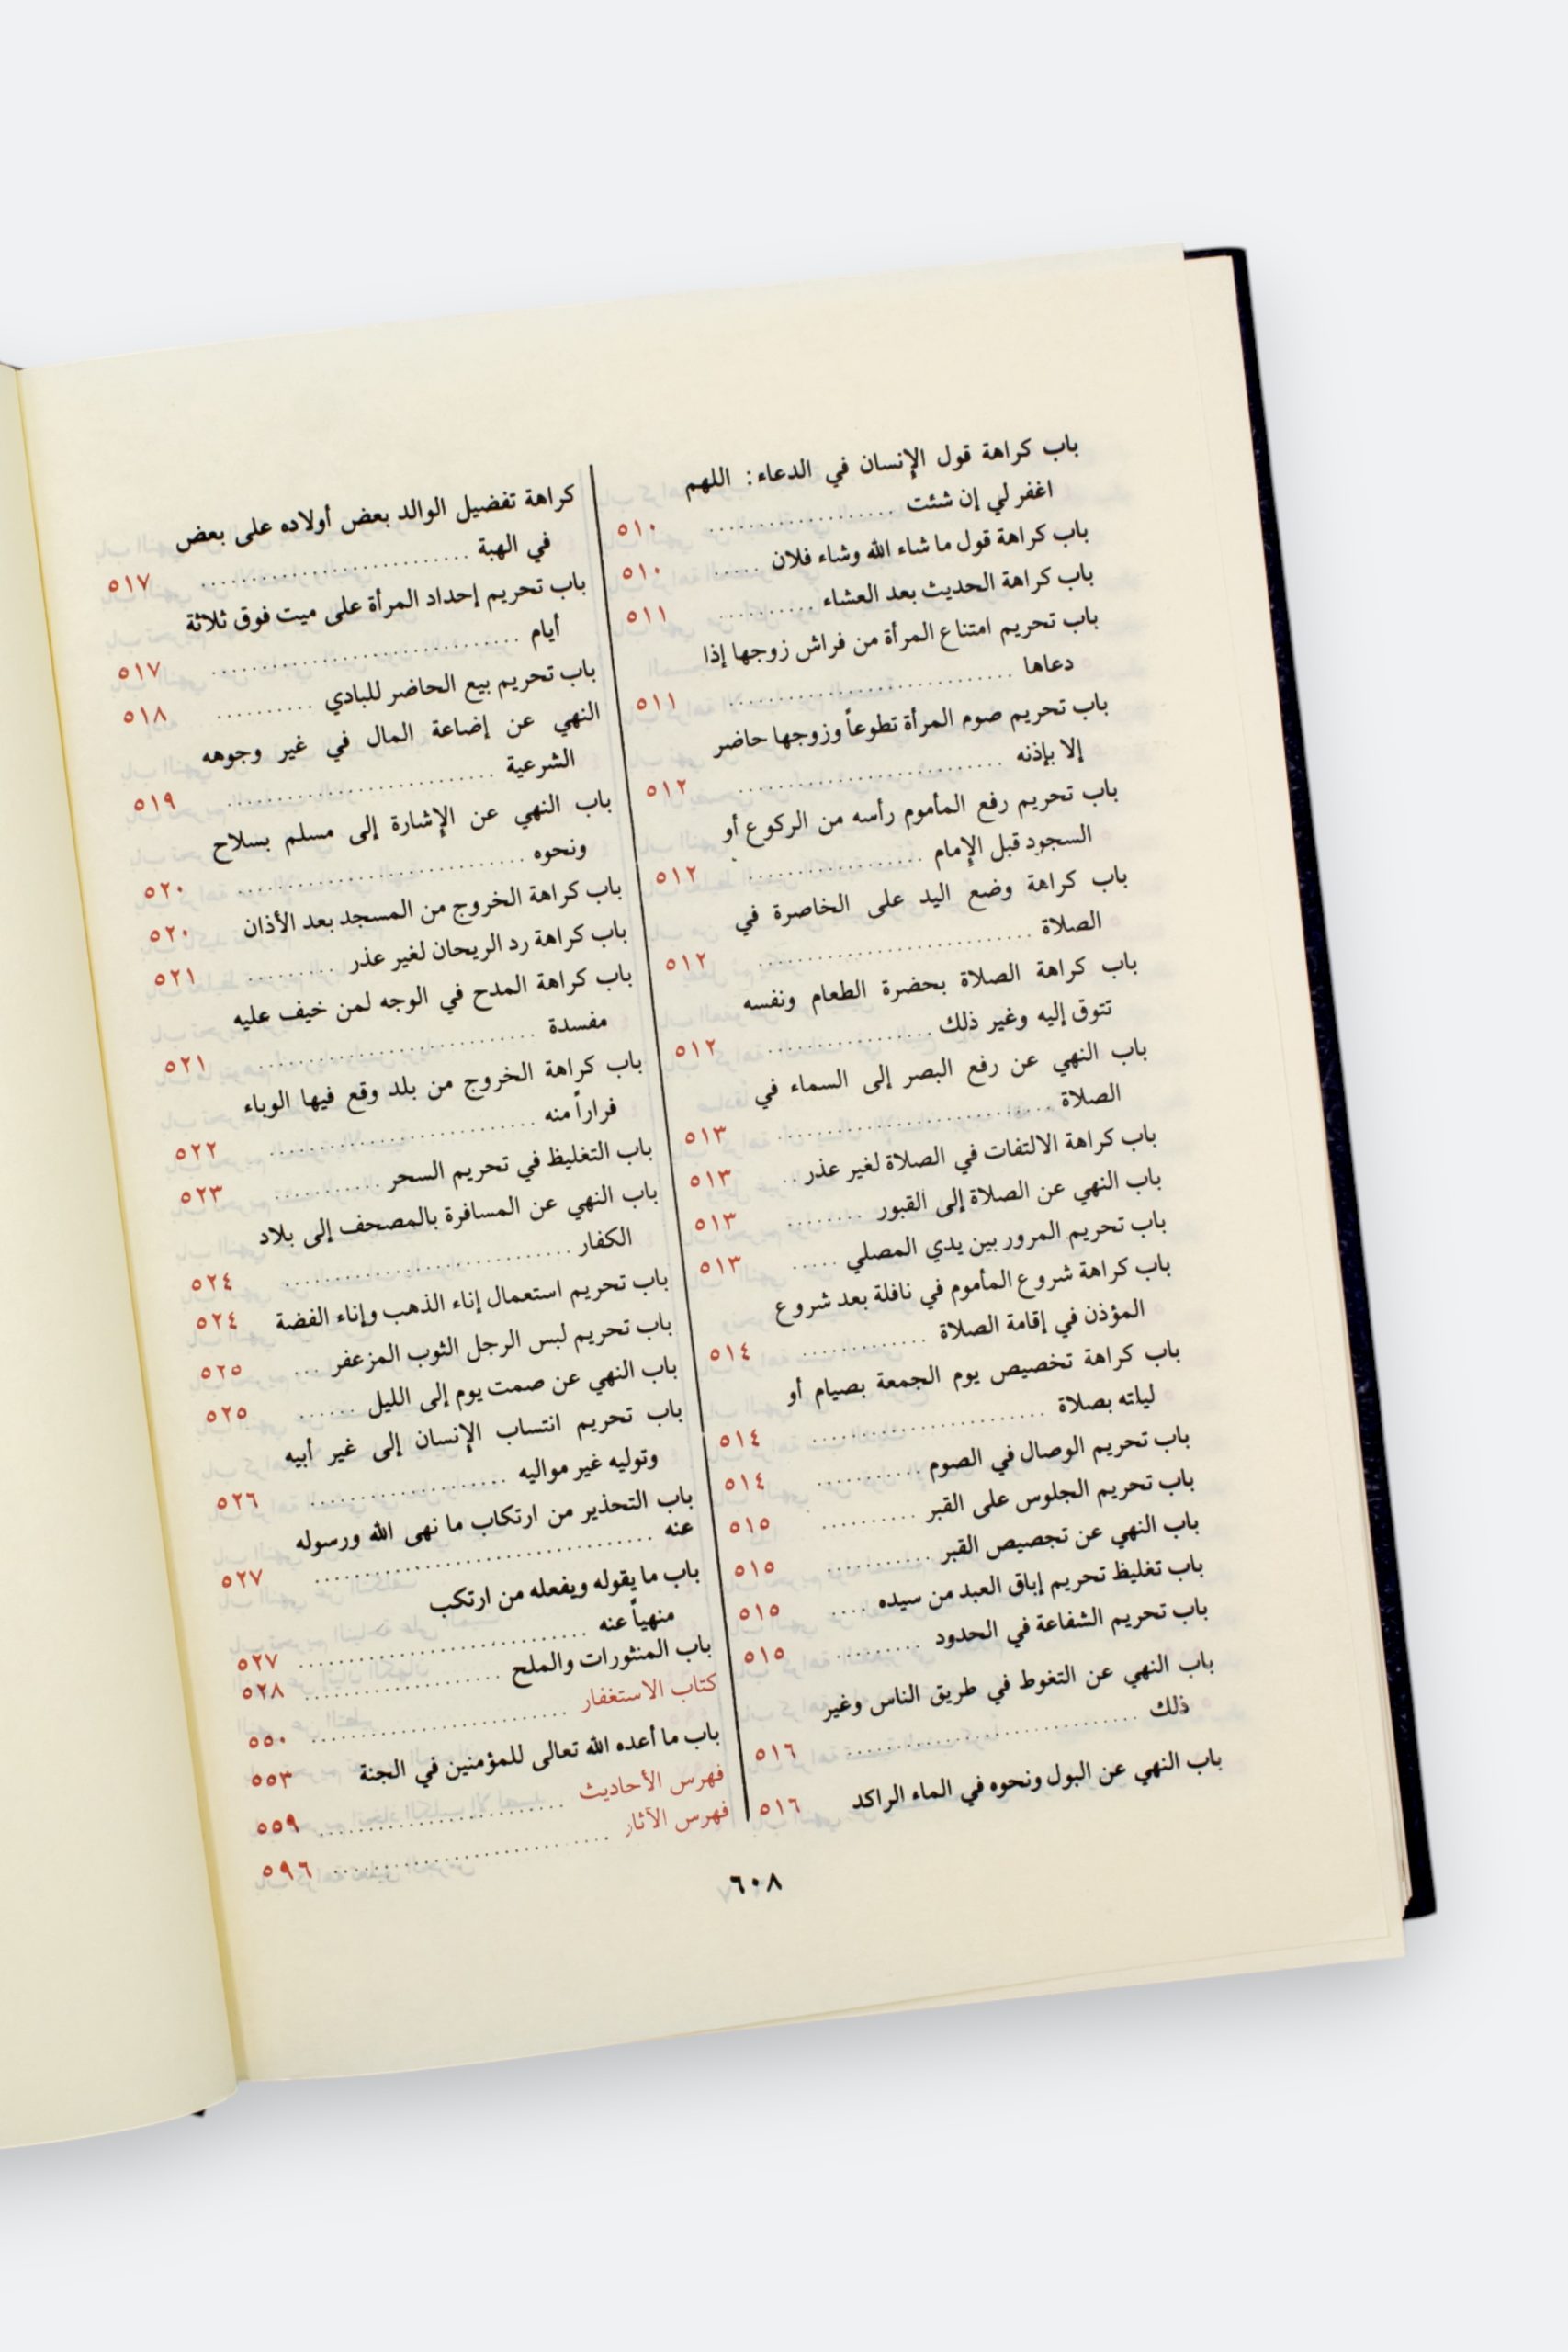 باب كراهة قول الإنسان في الدعاء: اللهم
اغفر لي إن شئت ................... ٥١٠
باب كراهة قول ما شاء الله وشاء فلان ..... ٥١٠
باب كراهة الحديث بعد العشاء .......... ٥١١
باب تحريم امتناع المرأة من فراش زوجها إذا
دعاها ............................. ٥١١
باب تحريم صوم المرأة تطوعاً وزوجها حاضر
إلا بإذنه ........................... ٥١٢
باب تحريم رفع المأموم رأسه من الركوع أو
السجود قبل الإمام .................. ٥١٢
باب كراهة وضع اليد على الخاصرة في
الصلاة ............................ ٥١٢
باب كراهة الصلاة بحضرة الطعام ونفسه
تتوق إليه وغير ذلك ................. ٥١٢
باب النهي عن رفع البصر إلى السماء في
الصلاة ............................ ٥١٣
باب كراهة الالتفات في الصلاة لغير عذر .. ٥١٣
باب النهي عن الصلاة إلى القبور ........ ٥١٣
باب تحريم المرور بين يدي المصلي ..... ٥١٣
باب كراهة شروع المأموم في نافلة بعد شروع
المؤذن في إقامة الصلاة ............. ٥١٤
باب كراهة تخصيص يوم الجمعة بصيام أو
ليلته بصلاة ........................ ٥١٤
باب تحريم الوصال في الصوم ........... ٥١٤
باب تحريم الجلوس على القبر .......... ٥١٥
باب النهي عن تجصيص القبر ........... ٥١٥
باب تغليظ تحريم إباق العبد من سيده .... ٥١٥
باب تحريم الشفاعة في الحدود ......... ٥١٥
باب النهي عن التغوط في طريق الناس وغير
ذلك .............................. ٥١٦
باب النهي عن البول ونحوه في الماء الراكد ٥١٦
كراهة تفضيل الوالد بعض أولاده على بعض
في الهبة ........................... ٥١٧
باب تحريم إحداد المرأة على ميت فوق ثلاثة
أيام ............................... ٥١٧
باب تحريم بيع الحاضر للبادي .......... ٥١٨
النهي عن إضاعة المال في غير وجوهه
الشرعية ........................... ٥١٩
باب النهي عن الإشارة إلى مسلم بسلاح
ونحوه ............................. ٥٢٠
باب كراهة الخروج من المسجد بعد الأذان ٥٢٠
باب كراهة رد الريحان لغير عذر ......... ٥٢١
باب كراهة المدح في الوجه لمن خيف عليه
مفسدة ............................ ٥٢١
باب كراهة الخروج من بلد وقع فيها الوباء
فراراً منه ........................... ٥٢٢
باب التغليظ في تحريم السحر ........... ٥٢٣
باب النهي عن المسافرة بالمصحف إلى بلاد
الكفار ............................. ٥٢٤
باب تحريم استعمال إناء الذهب وإناء الفضة ٥٢٤
باب تحريم لبس الرجل الثوب المزعفر ... ٥٢٥
باب النهي عن صمت يوم إلى الليل ...... ٥٢٥
باب تحريم انتساب الإنسان إلى غير أبيه
وتوليه غير مواليه .................... ٥٢٦
باب التحذير من ارتكاب ما نهى الله ورسوله
عنه ................................ ٥٢٧
باب ما يقوله ويفعله من ارتكب
منهياً عنه ........................... ٥٢٧
باب المنثورات والملح .................... ٥٢٨
كتاب الاستغفار .......................... ٥٥٠
باب ما أعده الله تعالى للمؤمنين في الجنة ٥٥٣
فهرس الأحاديث ......................... ٥٥٩
فهرس الآثار ............................ ٥٩٦
٦٠٨